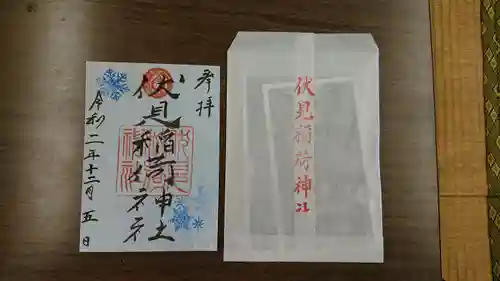 参拝
伏見稲荷神社
令和二年十二月五日
伏見稲荷神社